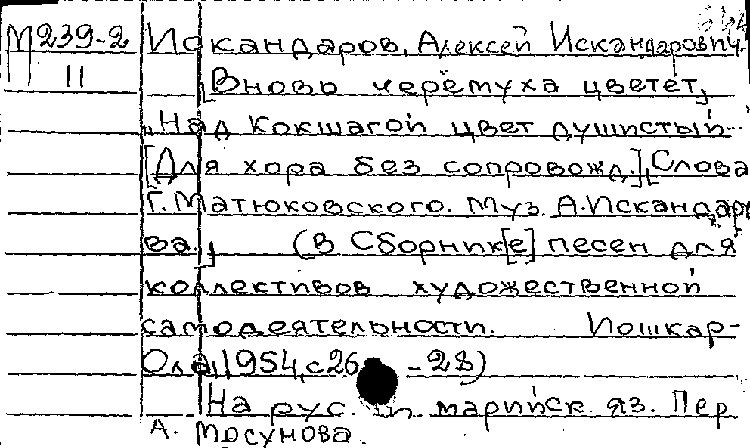 М239-2 Искандаров, Алексей Искандарович.
11 [Вновь черёмуха цветёт,]
"Над Кокшагой цвет душистый...
[Для хора без сопровожд.] [Слова
Г. Матюковского. Муз. А. Искандаро-
ва.] (В Сборник[е] песен для
коллективов художественной
самодеятельности. Йошкар-
Ола, 1954, с 26 -28)
На рус. и марийск яз. Пер
А. Мосунова.